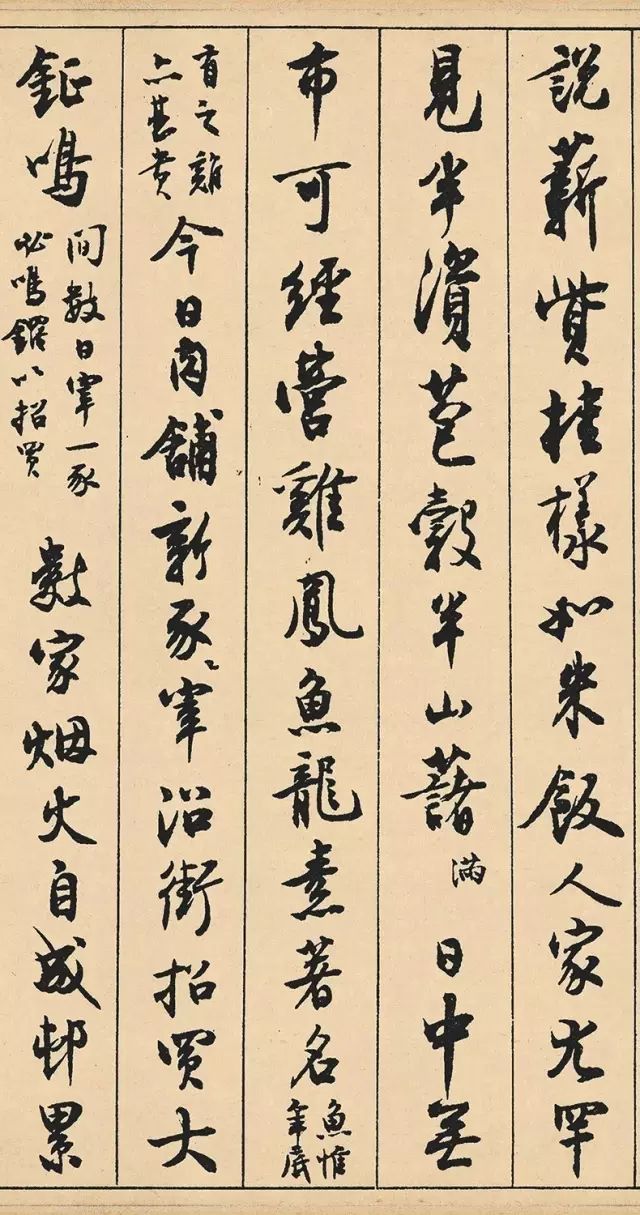 說薪貲桂樣如米飯人家尤罕
見半資苞穀半山藷 滿 日中無
布可經營雞鳳魚龍素著名 魚惟年底
有之雞亦甚貴 今日肉舖新豕宰沿街招買大
鉦鳴 間數日宰一豕必鳴鑼以招買 數家烟火自成邨累